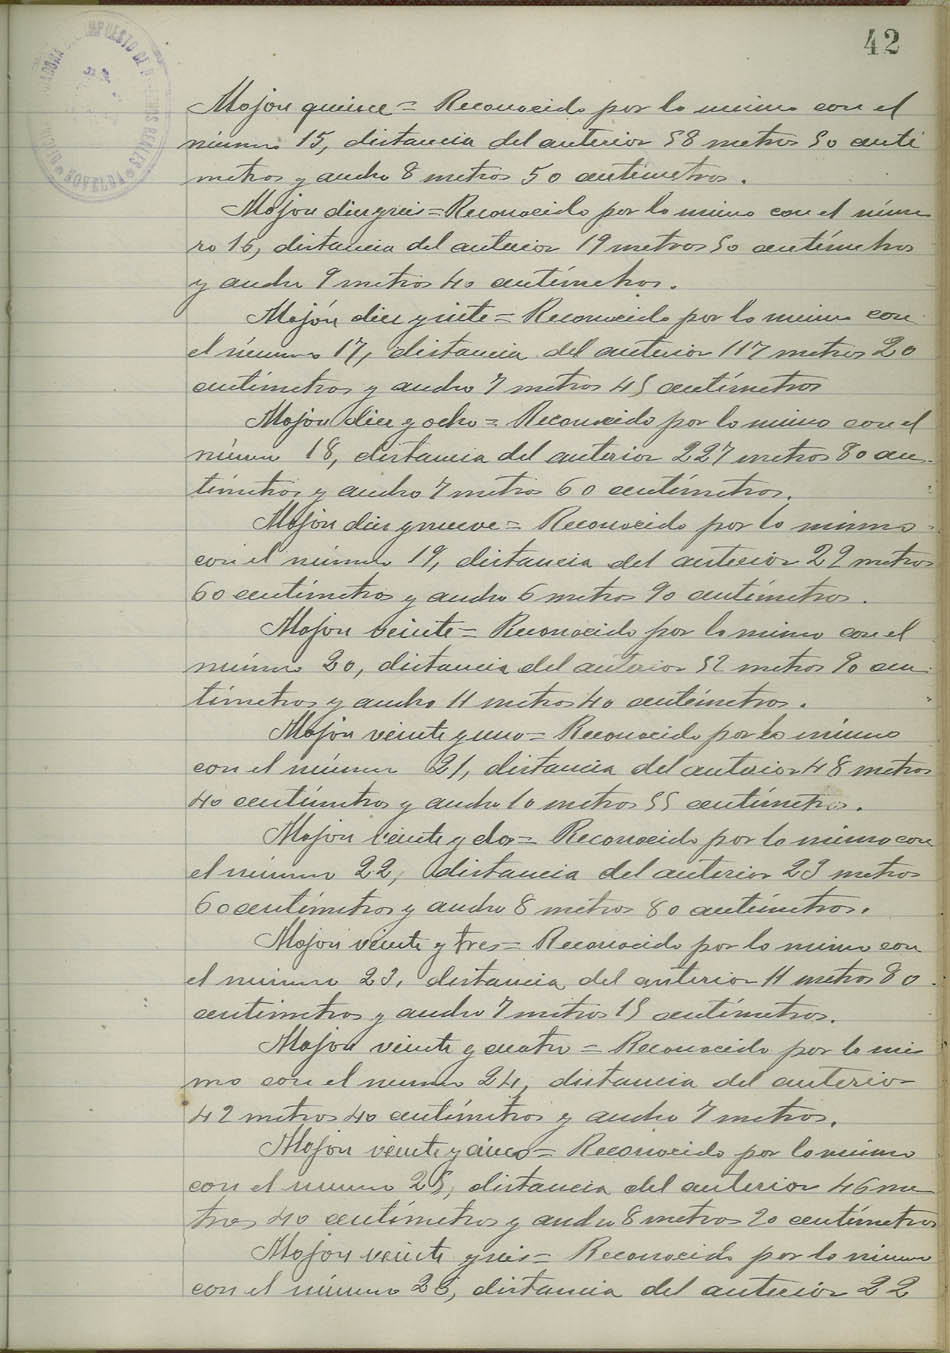 42
Mojon quince = Reconocido por lo mismo con el
número 15, distancia del anterior 58 metros 50 centi
metros y ancho 8 metros 50 centimetros.
Mojon diez y seis = Reconocido por lo mismo con el núme
ro 16, distancia del anterior 19 metros 50 centímetros
y ancho 9 metros 40 centímetros.
Mojón diez y siete = Reconocido por lo mismo con
el número 17, distancia del anterior 117 metros 20
centímetros y ancho 7 metros 45 centímetros
Mojon diez y ocho = Reconocido por lo mismo con el
número 18, distancia del anterior 227 metros 80 cen
tímetros y ancho 7 metros 60 centímetros.
Mojon diez y nueve = Reconocido por lo mismo
con el número 19, distancia del anterior 29 metros
60 centímetros y ancho 6 metros 90 centímetros.
Mojon veinte = Reconocido por lo mismo con el
número 20, distancia del anterior 52 metros 90 cen
tímetros y ancho 11 metros 40 centímetros.
Mojon veinte y uno = Reconocido por lo mismo
con el número 21, distancia del anterior 48 metros
40 centímetros y ancho 10 metros 55 centímetros.
Mojon veinte y dos = Reconocido por lo mismo con
el número 22, distancia del anterior 23 metros
60 centímetros y ancho 8 metros 80 centímetros.
Mojon veinte y tres = Reconocido por lo mismo con
el número 23, distancia del anterior 11 metros 80
centimetros y ancho 7 metros 15 centímetros.
Mojon veinte y cuatro = Reconocido por lo mis
mo con el numero 24, distancia del anterior
42 metros 40 centímetros y ancho 7 metros.
Mojon veinte y cinco = Reconocido por lo mismo
con el numero 25, distancia del anterior 46 me
tros 40 centímetros y ancho 8 metros 20 centímetros
Mojon veinte y seis = Reconocido por lo mismo
con el número 26, distancia del anterior 22